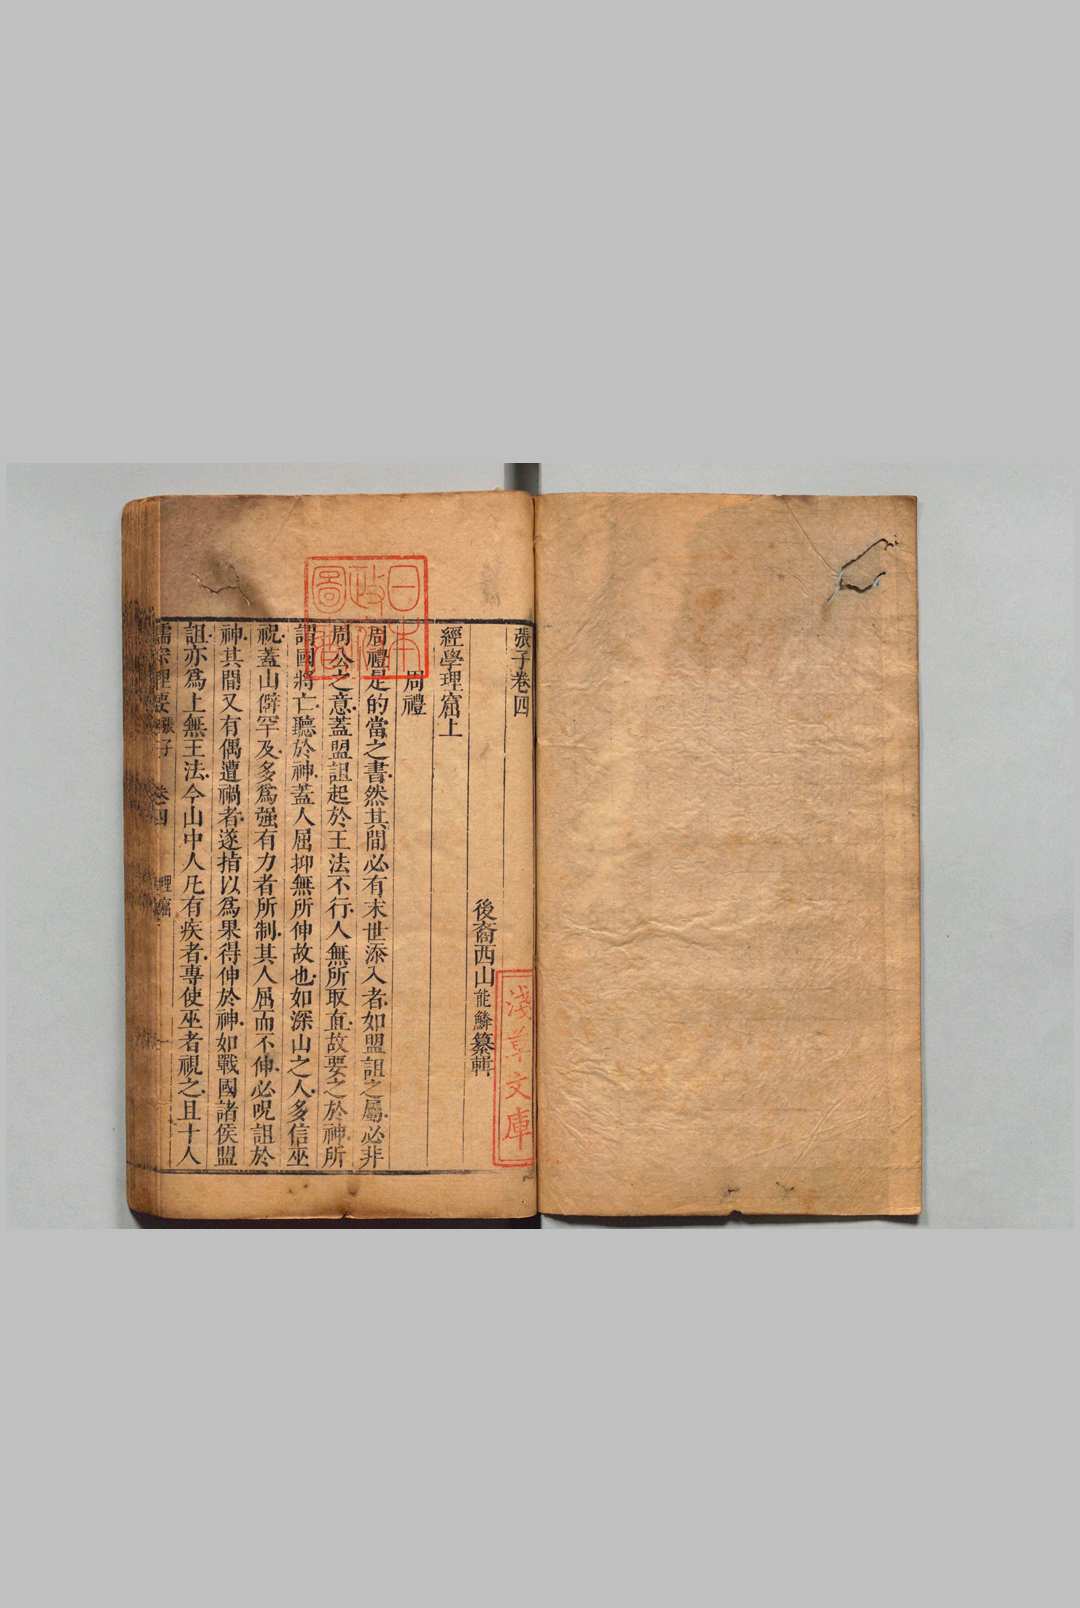 張子卷四
後裔西山能鱗纂輯
經學理窟上
周禮
周禮是的當之書然其間必有末世添入者如盟詛之屬必非
周公之意蓋盟詛起於王法不行人無所取直故要之於神所
謂國將亡聽於神蓋人屈抑無所伸故也如深山之人多信巫
祝蓋山僻罕及多爲强有力者所制其人屈而不伸必呪詛於
神其間又有偶遭禍者遂指以爲果得伸於神如戰國諸侯盟
詛亦爲上無王法今山中人凡有疾者專使巫者視之且十人
儒宗理要 張子 卷四 理窟
日本政府圖書
淺草文庫